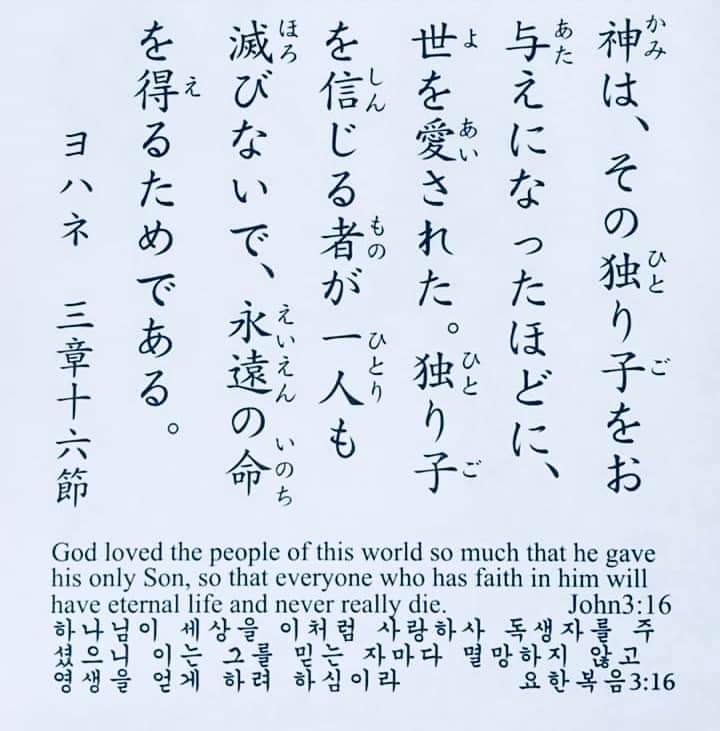 かみ ひと ご
神は、その独り子をお
あた
与えになったほどに、
よ あい ひと ご
世を愛された。独り子
しん もの ひとり
を信じる者が一人も
ほろ えいえん いのち
滅びないで、永遠の命
え
を得るためである。
ヨハネ 三章十六節
God loved the people of this world so much that he gave
his only Son, so that everyone who has faith in him will
have eternal life and never really die. John3:16
하나님이 세상을 이처럼 사랑하사 독생자를 주
셨으니 이는 그를 믿는 자마다 멸망하지 않고
영생을 얻게 하려 하심이라 요한복음3:16